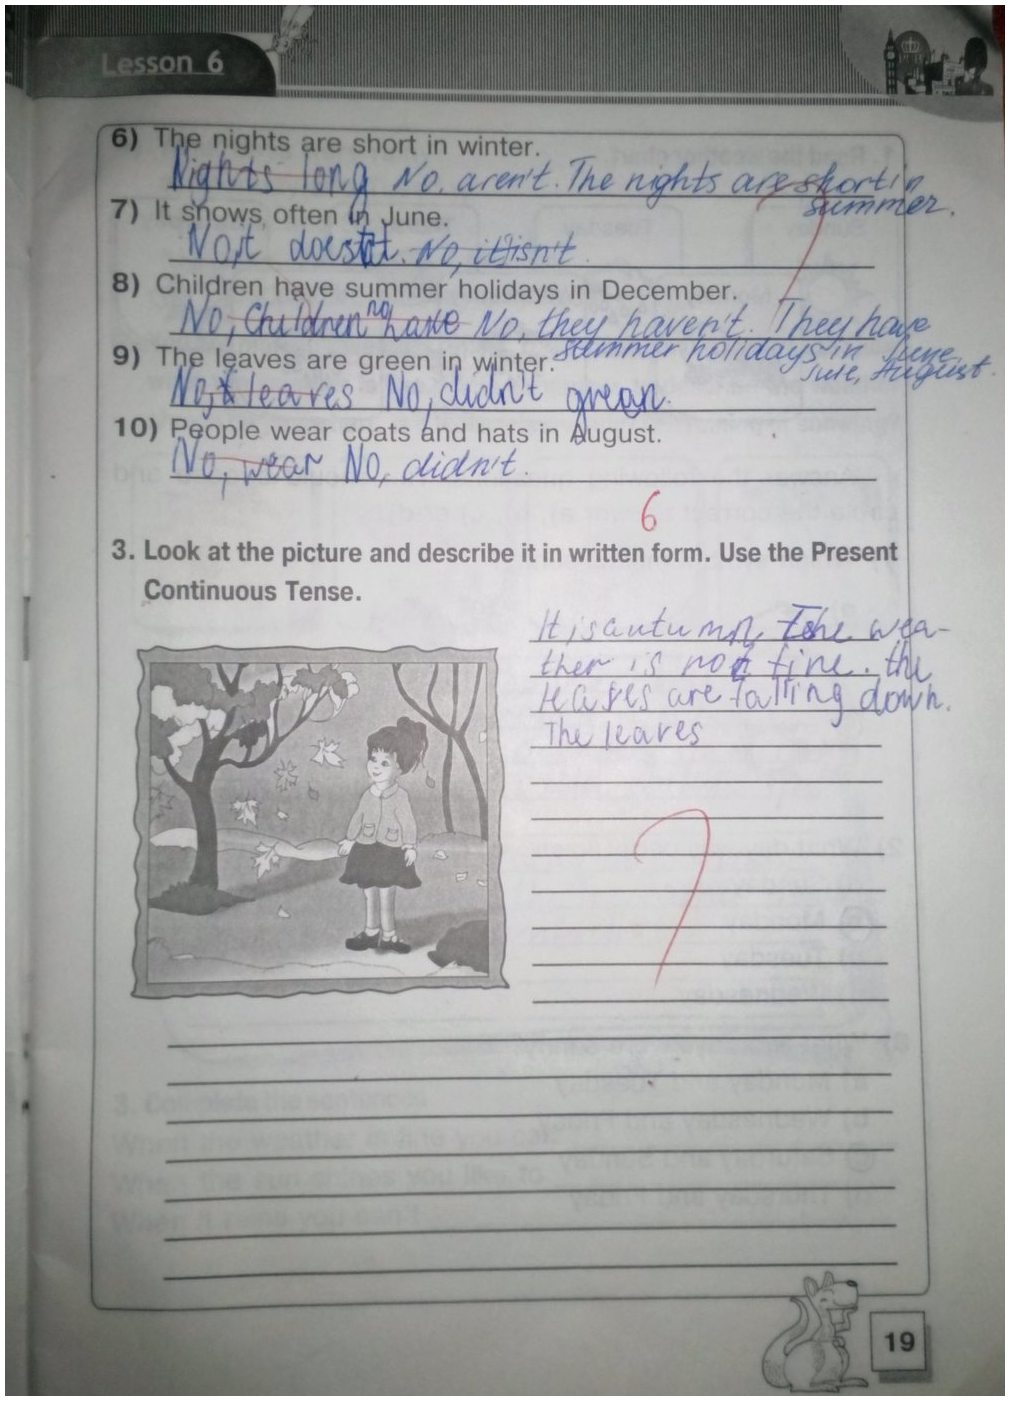 Lesson 6
6) The nights are short in winter.
Nights long No, aren't. The nights are short in
summer.
7) It snows often in June.
No,it doesn't. No, it isn't
8) Children have summer holidays in December.
No, Children no have No, they haven't. They have
summer holidays in June,
9) The leaves are green in winter.
Jule, August.
No, leaves No, didn't green.
10) People wear coats and hats in August.
No, wear No, didn't.
6
3. Look at the picture and describe it in written form. Use the Present
Continuous Tense.
It is autumn, The wea-
ther is not fine. the
leaves are falling down.
The leaves
19